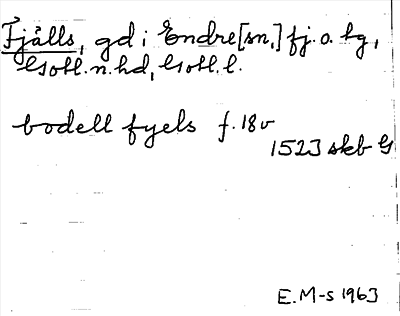 Fjälls, gd i Endre[sn,] fj. o. hg,
Gotl. n. hd, Gotl. l.
bodell fyels f. 18 v
1523 skb G
E. M-s 1963